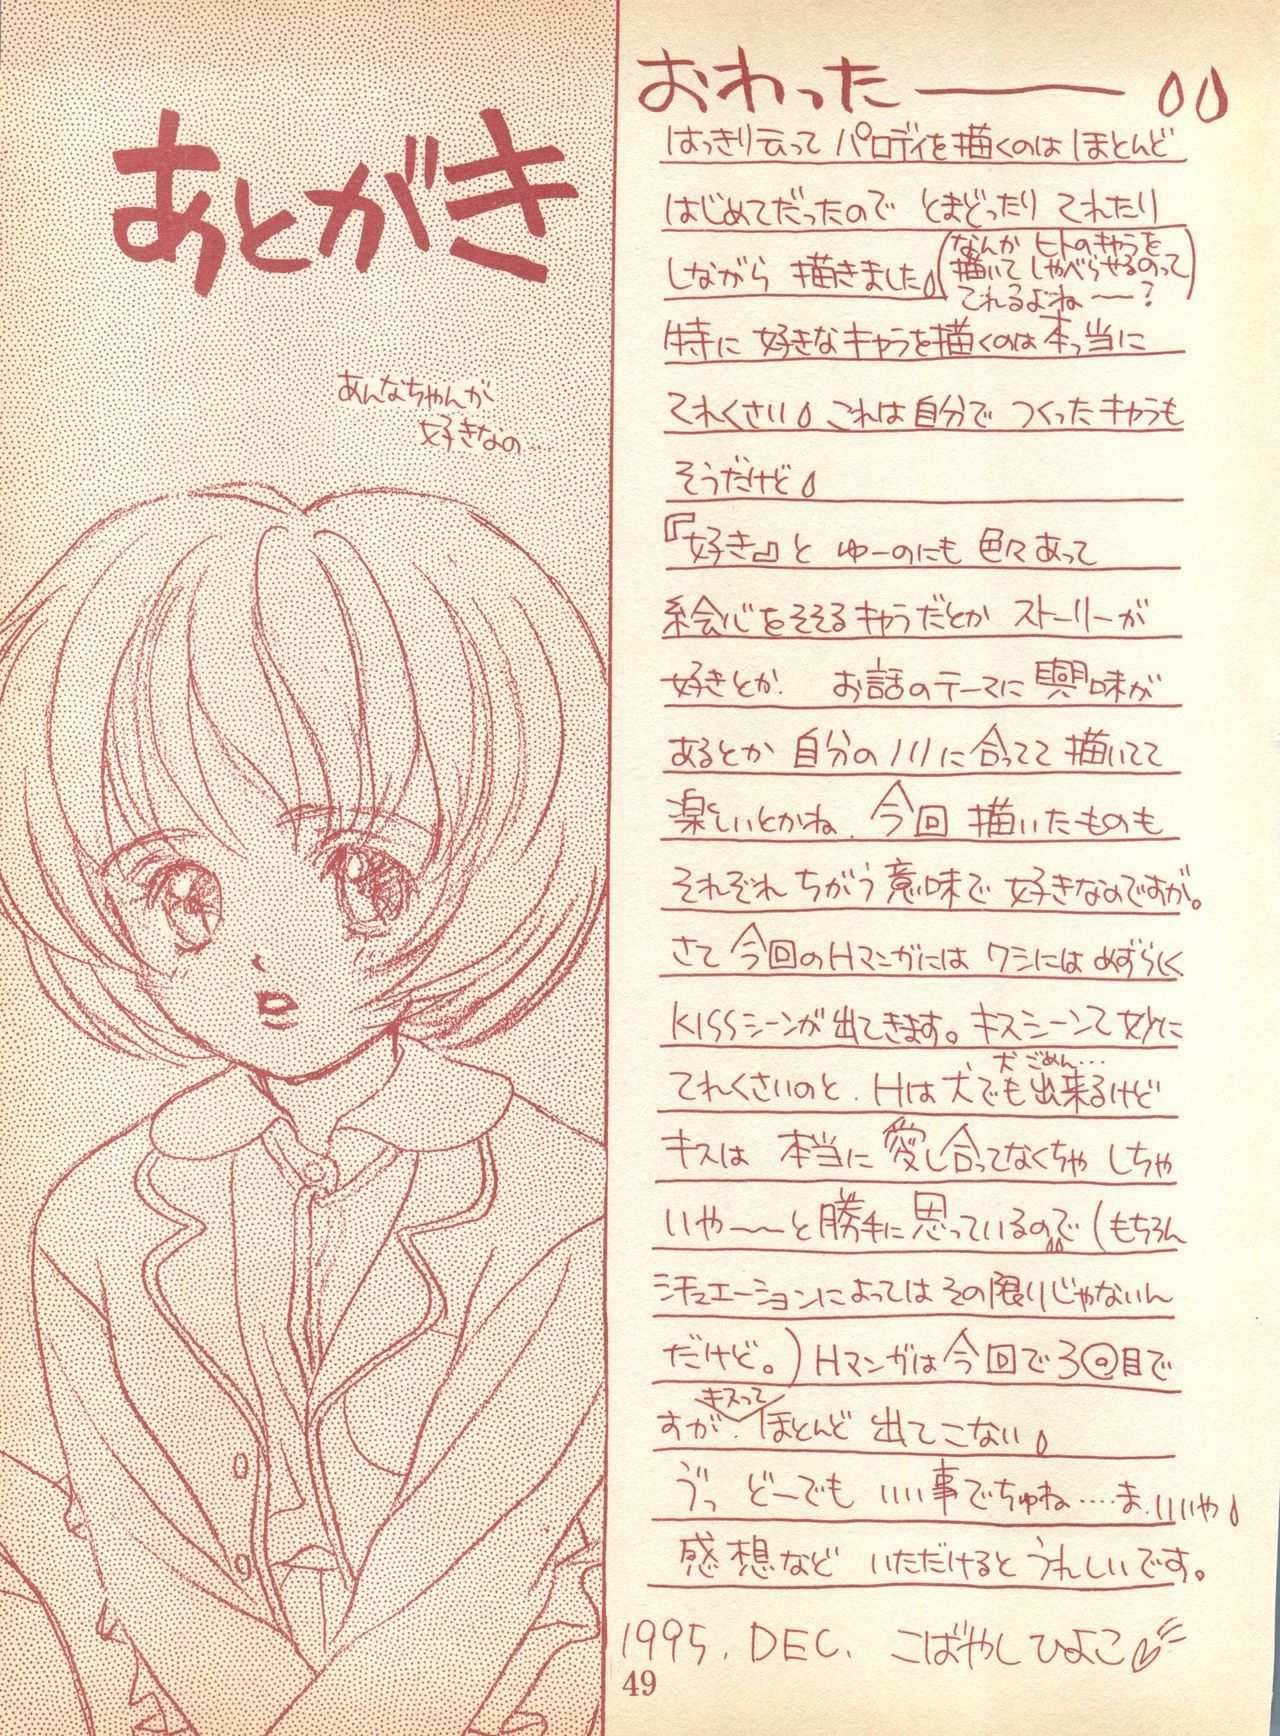 あとがき
あんなちゃんが
好きなの…
おわったーーー
はっきり云って パロディを描くのは ほとんど
はじめてだったので とまどったり てれたり
しながら 描きました
(なんか ヒトのキャラを
描いて しゃべらせるのって
てれるよねー?)
特に 好きなキャラを描くのは本っ当に
てれくさい これは自分で つくったキャラも
そうだけど
『好き』と ゆーのにも 色々あって
絵心をそそるキャラだとか ストーリーが
好きとか、 お話のテーマに 興味が
あるとか 自分のノリに合ってて 描いてて
楽しいとかね、今回 描いたものも
それぞれ ちがう意味で 好きなのですが。
さて 今回のHマンガには ワシには めずらしく
KISSシーンが出てきます。キスシーンて妙に
てれくさいのと、Hは犬でも出来るけど
犬 ごめん…
キスは 本当に 愛し合ってなくちゃ しちゃ
いや〜〜と勝手に思っているので (もちろん
シチュエーションによってはその限りじゃないん
だけど。) Hマンガは今回で3回目で
すが、キスって ほとんど 出てこない
うっ どーでも いい事でちゅね……ま、いいや
感想など いただけると うれしいです。
1995. DEC. こばやしひよこ
49